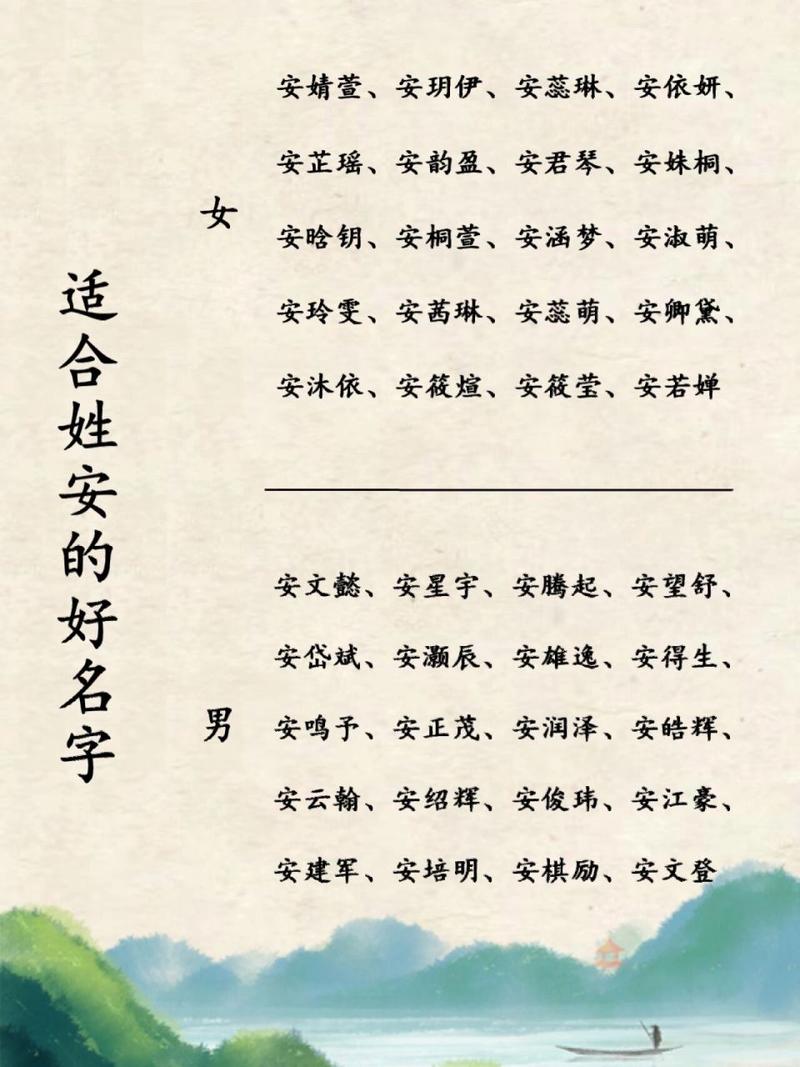 适合姓安的好名字
女
安婧萱、安玥伊、安蕊琳、安依妍、
安芷瑶、安韵盈、安君琴、安姝桐、
安晗钥、安桐萱、安涵梦、安淑萌、
安玲雯、安茜琳、安蕊萌、安卿黛、
安沐依、安筱煊、安筱莹、安若婵
男
安文懿、安星宇、安腾起、安望舒、
安岱斌、安灏辰、安雄逸、安得生、
安鸣予、安正茂、安润泽、安皓辉、
安云翰、安绍辉、安俊玮、安江豪、
安建军、安培明、安棋励、安文登